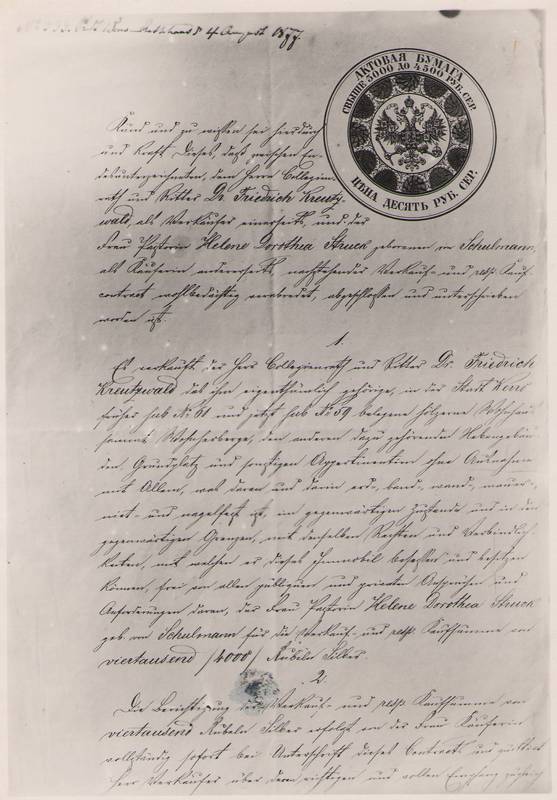 4 August 1877.
АКТОВАЯ БУМАГА
СВЫШЕ 3000 ДО 4500 РУБ. СЕР.
ЦѢНА ДЕСЯТЬ РУБ. СЕР.
Kund und zu wissen sei hierdurch
und Kraft Dieses, daß zwischen En-
desunterzeichneten, dem Herrn Collegien-
rath und Ritter Dr. Friedrich Kreutz-
wald, als Verkäufer einerseits, und der
Frau Pastorin Helene Dorothea Struck geborenen von Schulmann,
als Käuferin andererseits, nachstehender Verkauf- und resp. Kauf-
contract wohlbedächtig verabredet, abgeschlossen und unterschrieben
worden ist.
1.
Es verkauft der Herr Collegienrath und Ritter Dr. Friedrich
Kreutzwald das ihm eigenthümlich gehörige, in der Stadt Werro
früher sub № 61 und jetzt sub № 59 belegene hölzerne Wohnhaus
sammt Wohnherberge, den anderen dazu gehörenden Nebengebäu-
den, Grundplatz und sonstigen Appertinentien ohne Ausnahme
mit Allem, was daran und darin erd-, band-, wand-, mauer-,
niet- und nagelfest ist, im gegenwärtigen Zustande und in den
gegenwärtigen Grenzen, mit denselben Rechten und Verbindlich-
keiten, mit welchen er dieses Immobil besessen und besitzen
können, frei von allen publiquen und privaten Ansprüchen und
Anforderungen daran, der Frau Pastorin Helene Dorothea Struck
geb. von Schulmann für die Verkauf- und resp. Kaufsumme von
viertausend /4000/ Rubeln Silber.
2.
Die Berichtigung der Verkauf- und resp. Kaufsumme von
viertausend Rubeln Silber erfolgt von der Frau Käuferin
vollständig sofort bei Unterschrift dieses Contracts und quittirt
Herr Verkäufer über deren richtigen und vollen Empfang zugleich